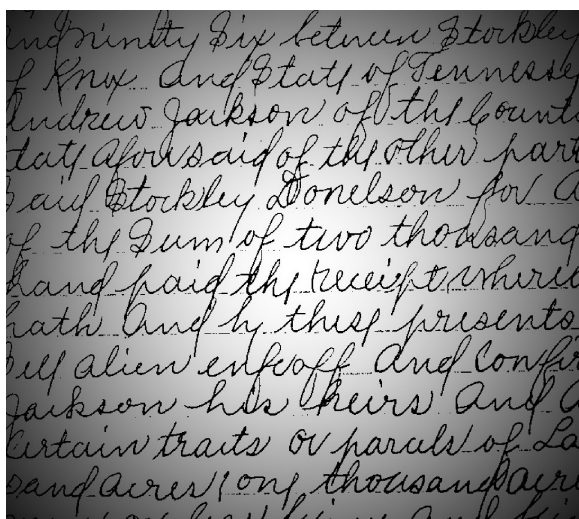 and ninety Six between Stockley
of Knox and State of Tennesse
Andrew Jackson of the Count
tate afoursaid of the other part
Said Stockley Donelson for a
of the Sum of two thousand
hand paid the receipt where
hath And by these presents
Sell alien enfeoff And Confir
Jackson his heirs And a
Certain traits or parcels of La
sand acres (one thousand acre